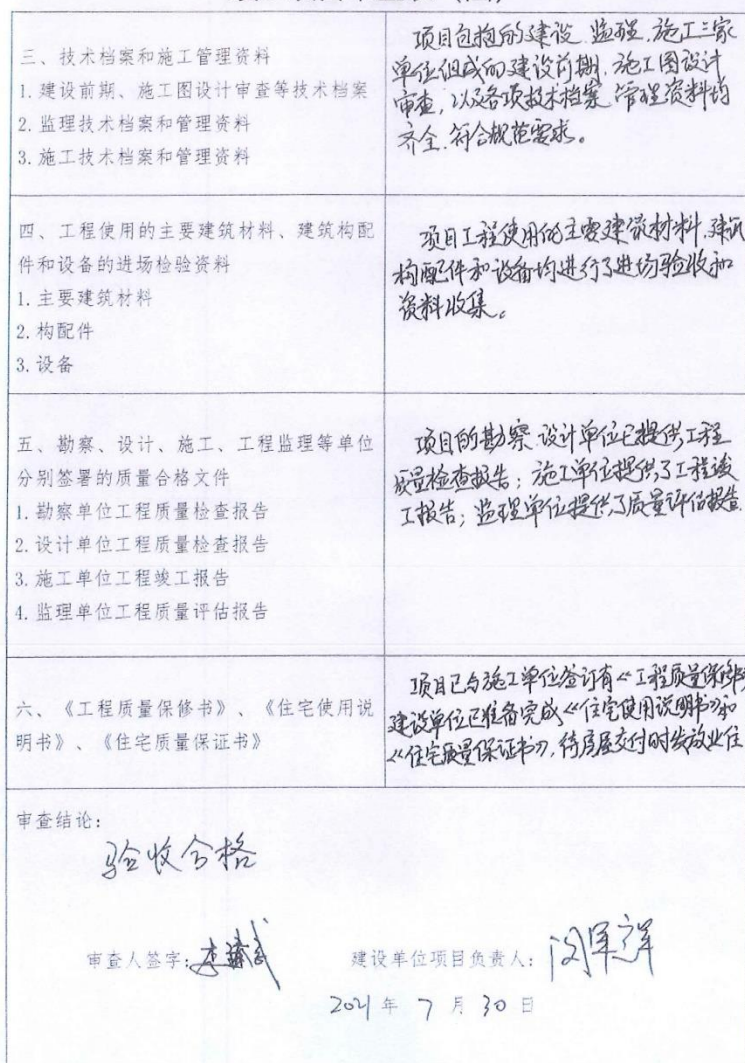 三、技术档案和施工管理资料
1.建设前期、施工图设计审查等技术档案
2.监理技术档案和管理资料
3.施工技术档案和管理资料
项目包括的建设、监理、施工三家
单位组成的建设前期、施工图设计
审查,以及各项技术档案、管理资料均
齐全,符合规范要求。
四、工程使用的主要建筑材料、建筑构配
件和设备的进场检验资料
1.主要建筑材料
2.构配件
3.设备
项目工程使用的主要建筑材料、建筑
构配件和设备均进行了进场验收和
资料收集。
五、勘察、设计、施工、工程监理等单位
分别签署的质量合格文件
1.勘察单位工程质量检查报告
2.设计单位工程质量检查报告
3.施工单位工程竣工报告
4.监理单位工程质量评估报告
项目的勘察、设计单位已提供工程
质量检查报告;施工单位提供了工程竣
工报告;监理单位提供了质量评估报告
六、《工程质量保修书》、《住宅使用说
明书》、《住宅质量保证书》
项目已与施工单位签订有《工程质量保修书
建设单位已准备完成《住宅使用说明书》和
《住宅质量保证书》,待房屋交付时发放业住
审查结论:
验收合格
审查人签字:
建设单位项目负责人:
2021年7月30日